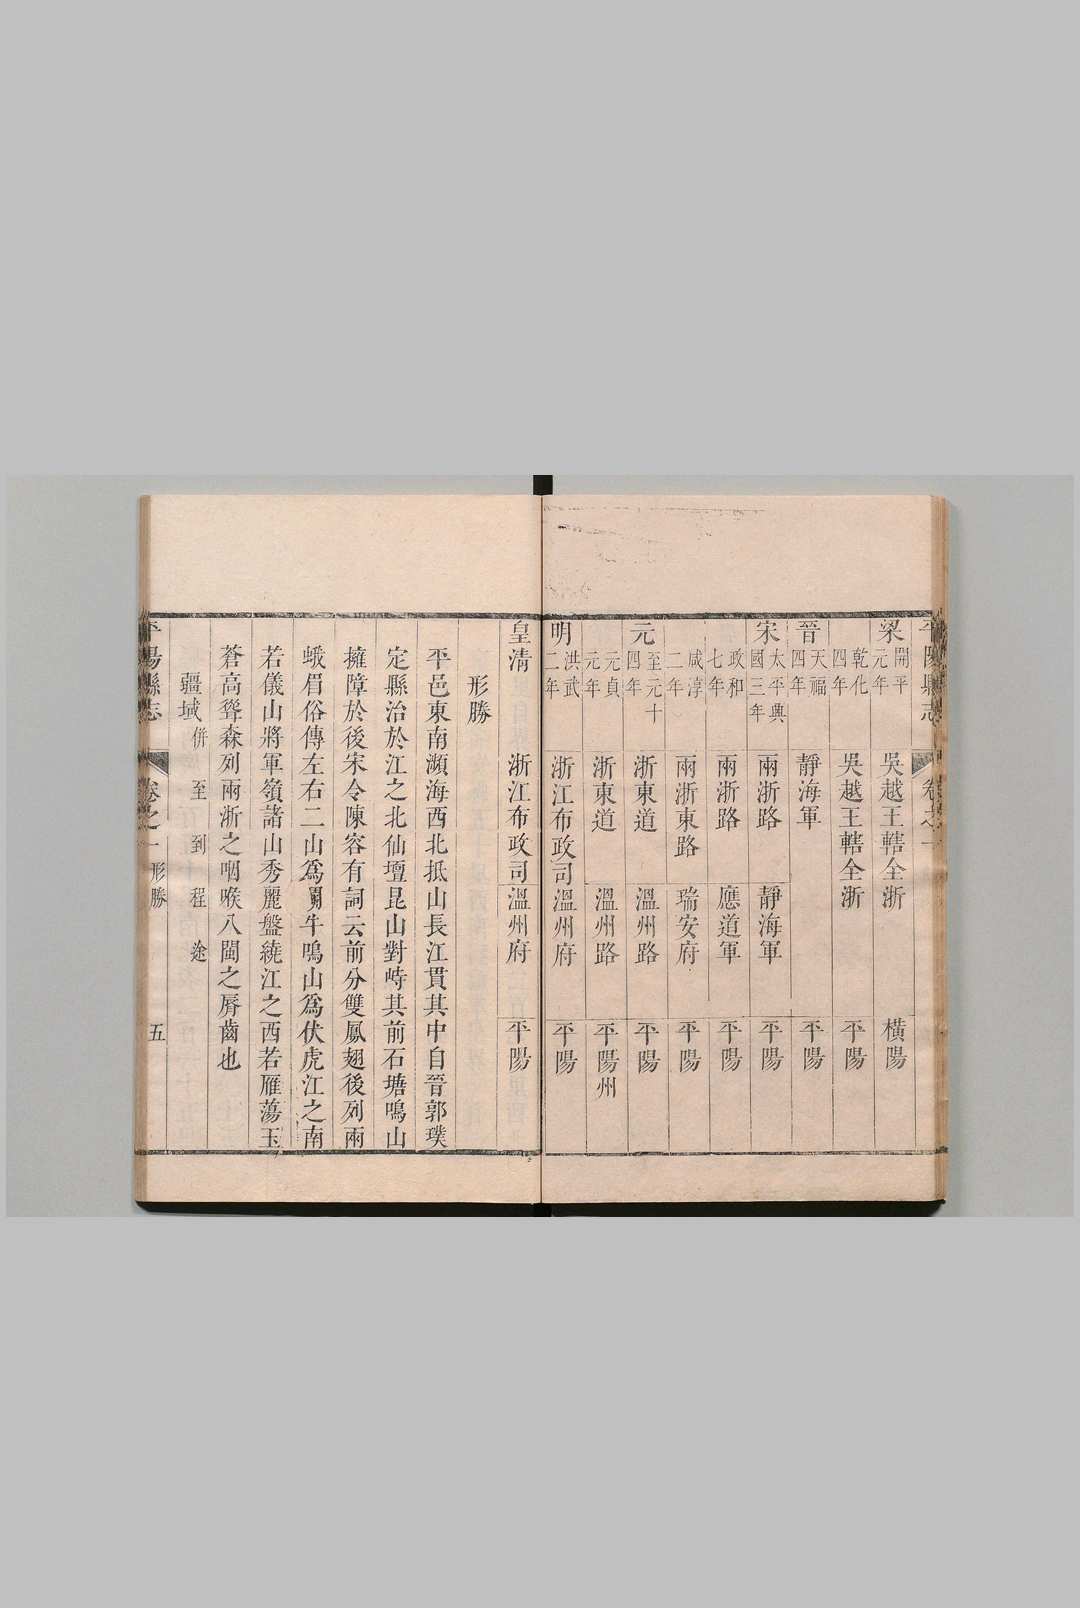 平陽縣志 卷之一
梁 開平元年 吳越王轄全浙 橫陽
乾化四年 吳越王轄全浙 平陽
晉 天福四年 靜海軍 平陽
宋 太平興國三年 兩浙路 靜海軍 平陽
政和七年 兩浙路 應道軍 平陽
咸淳二年 兩浙東路 瑞安府 平陽
元 至元十四年 浙東道 溫州路 平陽
元貞元年 浙東道 溫州路 平陽州
明 洪武二年 浙江布政司 溫州府 平陽
皇清 浙江布政司 溫州府 平陽
形勝
平邑東南瀕海西北抵山長江貫其中自晉郭璞
定縣治於江之北仙壇昆山對峙其前石塘鳴山
擁障於後宋令陳容有詞云前分雙鳳翅後列兩
蛾眉俗傳左右二山爲鬭牛鳴山爲伏虎江之南
若儀山將軍嶺諸山秀麗盤繞江之西若雁蕩玉
蒼高聳森列兩浙之咽喉八閩之脣齒也
疆域 併至到程途
平陽縣志 卷之一 形勝 五